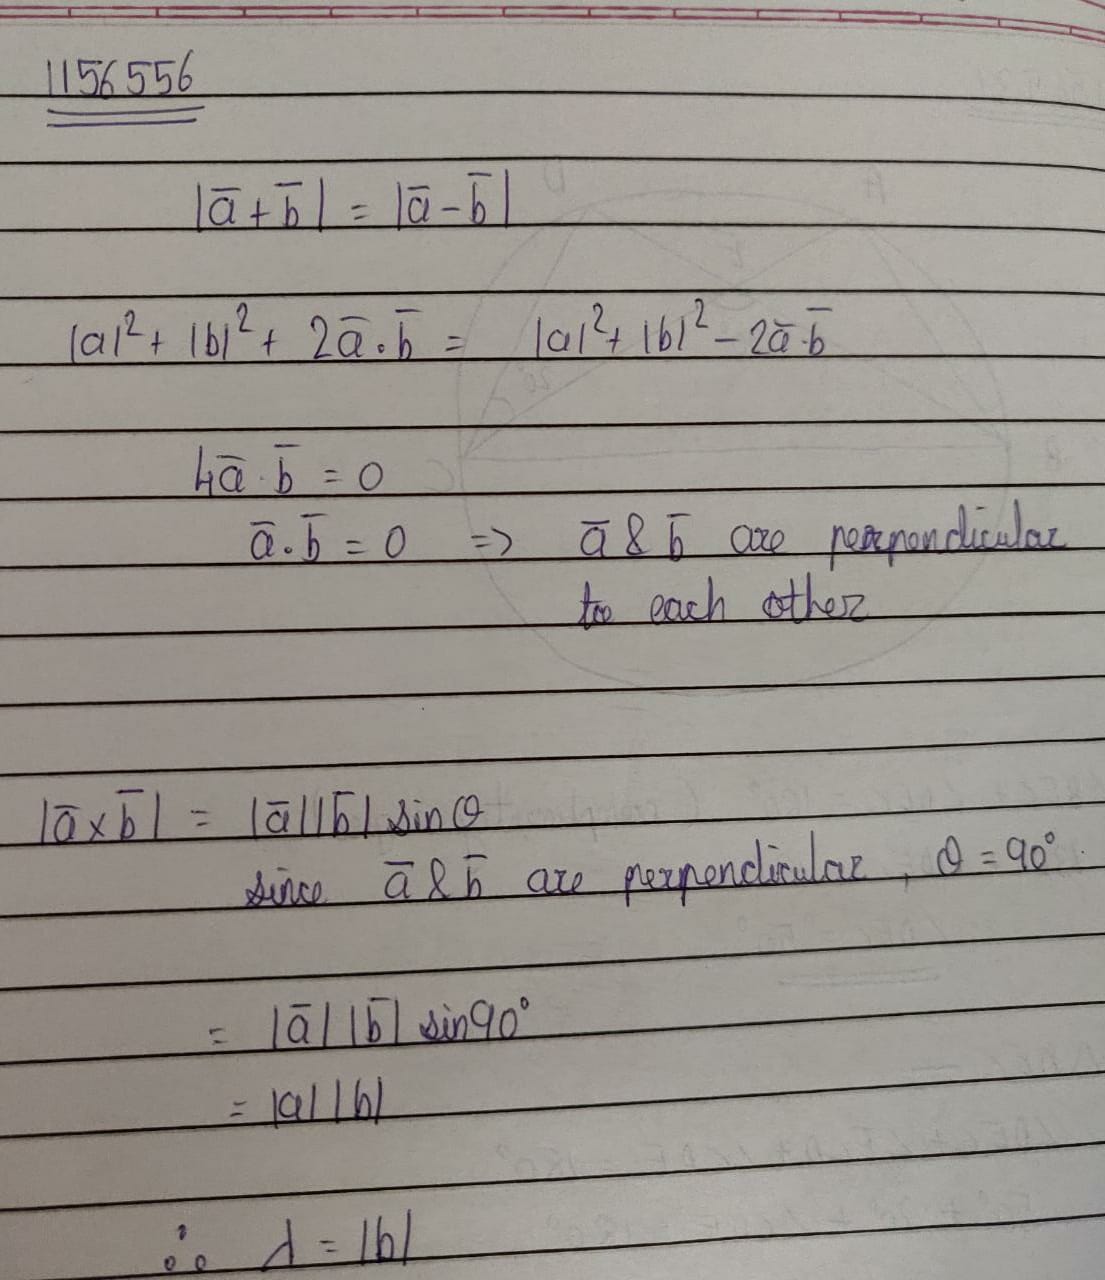 1156556
|a̅ + b̅| = |a̅ - b̅|
|a|² + |b|² + 2a̅ . b̅ = |a|² + |b|² - 2a̅ . b̅
4a̅ . b̅ = 0
a̅ . b̅ = 0 => a̅ & b̅ are perpendicular
to each other
|a̅ × b̅| = |a̅||b̅| sin θ
since a̅ & b̅ are perpendicular, θ = 90°
= |a̅| |b̅| sin 90°
= |a| |b|
∴ λ = |b|